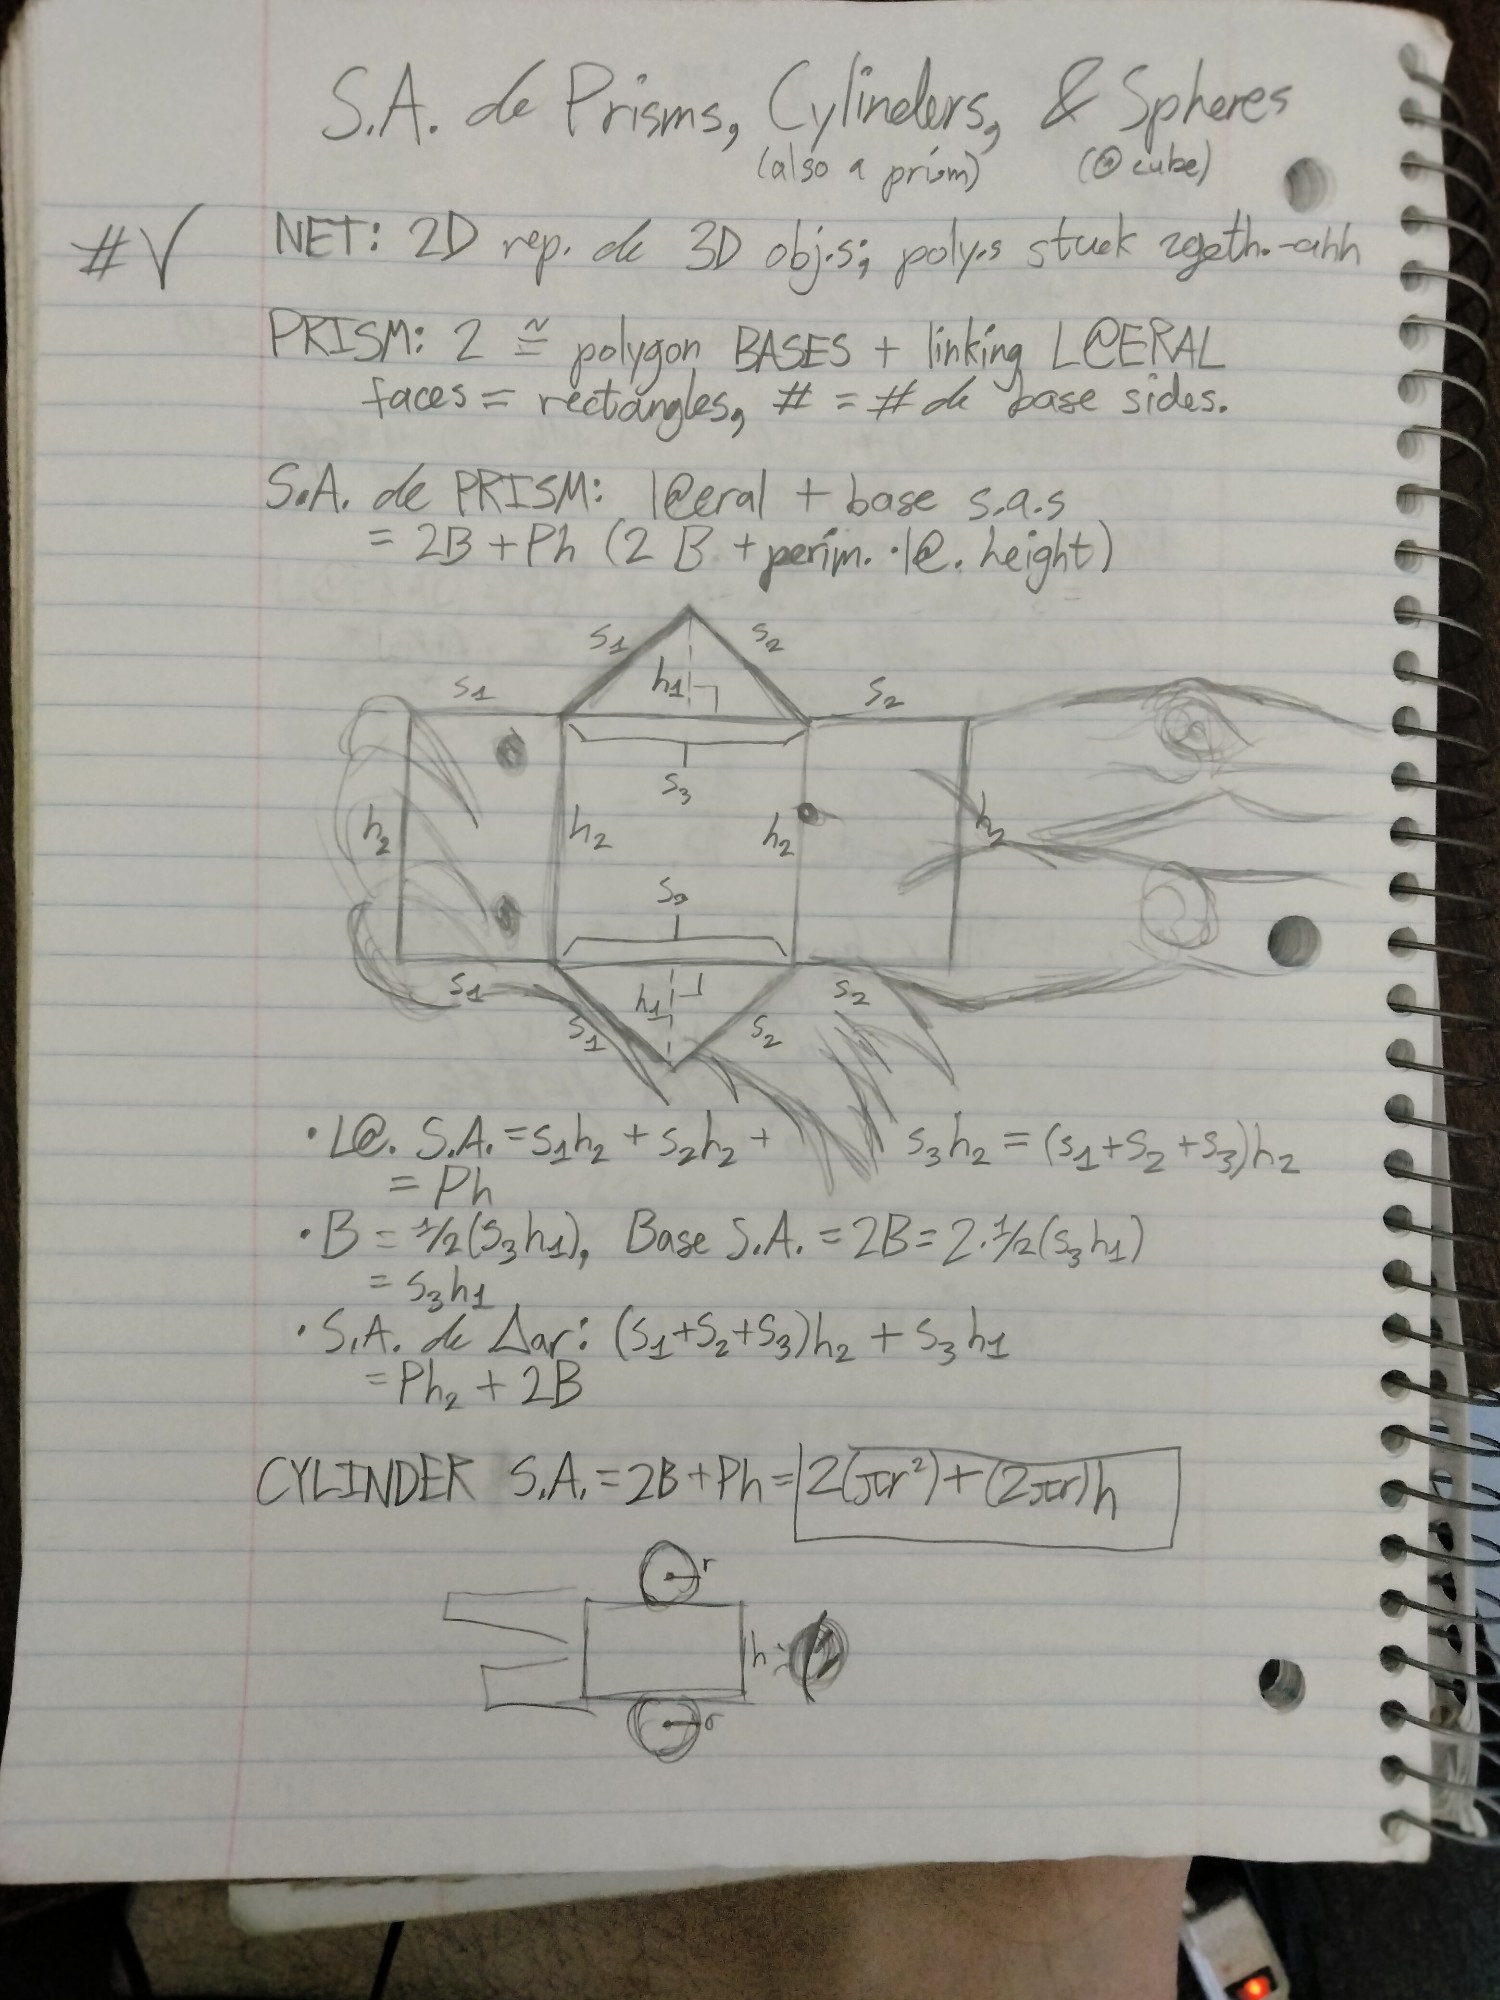 S.A. de Prisms, Cylinders, & Spheres
(also a prism) (@ cube)
#√ NET: 2D rep. de 3D obj.s; poly.s stuck 2geth.-ahh
PRISM: 2 ≅ polygon BASES + linking L@ERAL
faces = rectangles, # = # de base sides.
S.A. de PRISM: l@eral + base s.a.s
= 2B + Ph (2 B + perim. · l@. height)
s1 s2
s1 h1 s2
s3
h2 h2 h2 h2
s3
s1 h1 s2
s1 s2
· L@. S.A. = s1h2 + s2h2 + s3h2 = (s1+s2+s3)h2
= Ph
· B = 1/2(s3h1), Base S.A. = 2B = 2·1/2(s3h1)
= s3h1
· S.A. de Δar: (s1+s2+s3)h2 + s3h1
= Ph2 + 2B
CYLINDER S.A. = 2B + Ph = 2(πr²)+(2πr)h
r
h
r